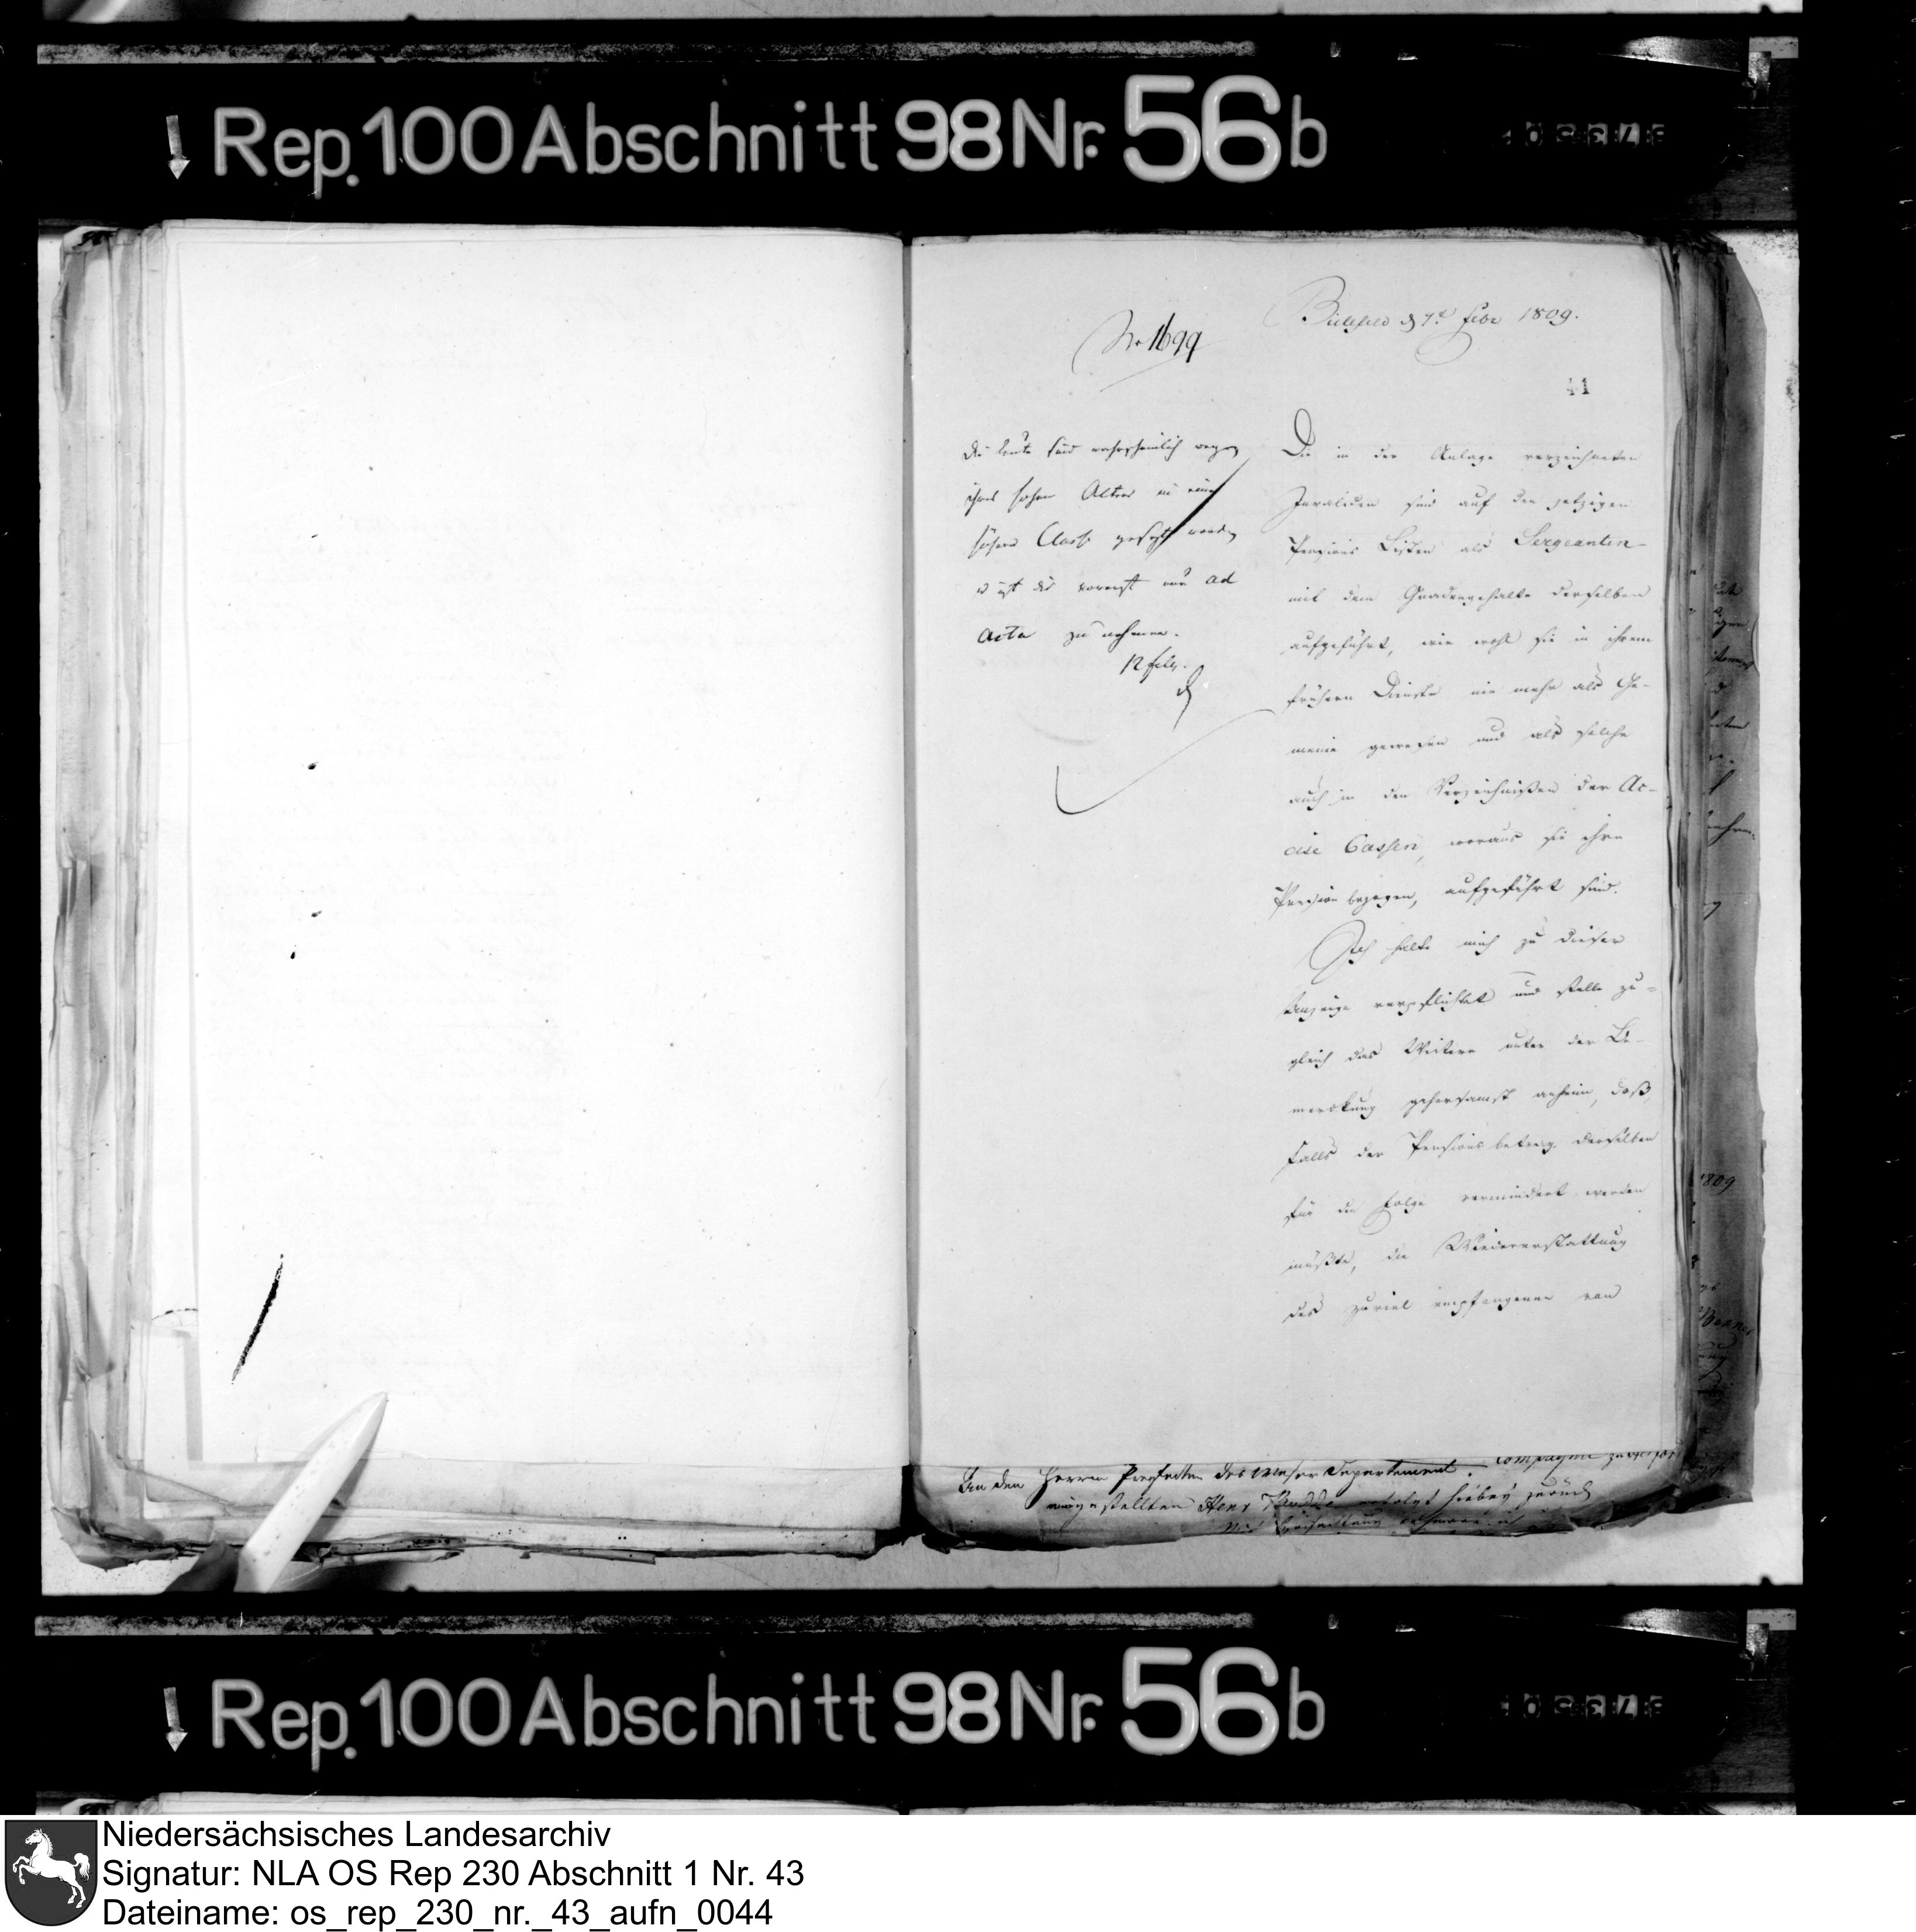 Rep. 100 Abschnitt 98 Nr. 56 b
Bielefeld d 7t Febr 1809.
No 1699
41
Die Leute sind wahrscheinlich wegen
ihres hohen Alters in eine
höhere Classe gesetzt worden
es ist dis vorerst nur ad
acta zu nehmen.
12 Febr.
Die in der Anlage verzeichneten
Invaliden sind auf den jetzigen
Pensions Listen als Sergeanten
mit dem Gnadengehalte derselben
aufgeführt, wie wohl sie in ihrem
frühern Dienste nie mehr als Ge-
meine gewesen und als solche
auch in den Verzeichnißen der Ac-
cise Cassen, woraus sie ihre
Pension bezogen, aufgeführt sind.
Ich halte mich zu dieser
Anzeige verpflichtet und stelle zu-
gleich das Weitere unter der Be-
merckung gehorsamst anheim, daß,
falls der Pensions betrag derselben
für die Folge vermindert werden
müßte, die Wiedererstattung
des zuviel empfangenen von
An den Herrn Präfecten des Weser Departement.
Compagnie
angestellten Henr Budde erfolgt hiebey zurück
1809
Rep. 100 Abschnitt 98 Nr. 56 b
Niedersächsisches Landesarchiv
Signatur: NLA OS Rep 230 Abschnitt 1 Nr. 43
Dateiname: os_rep_230_nr._43_aufn_0044